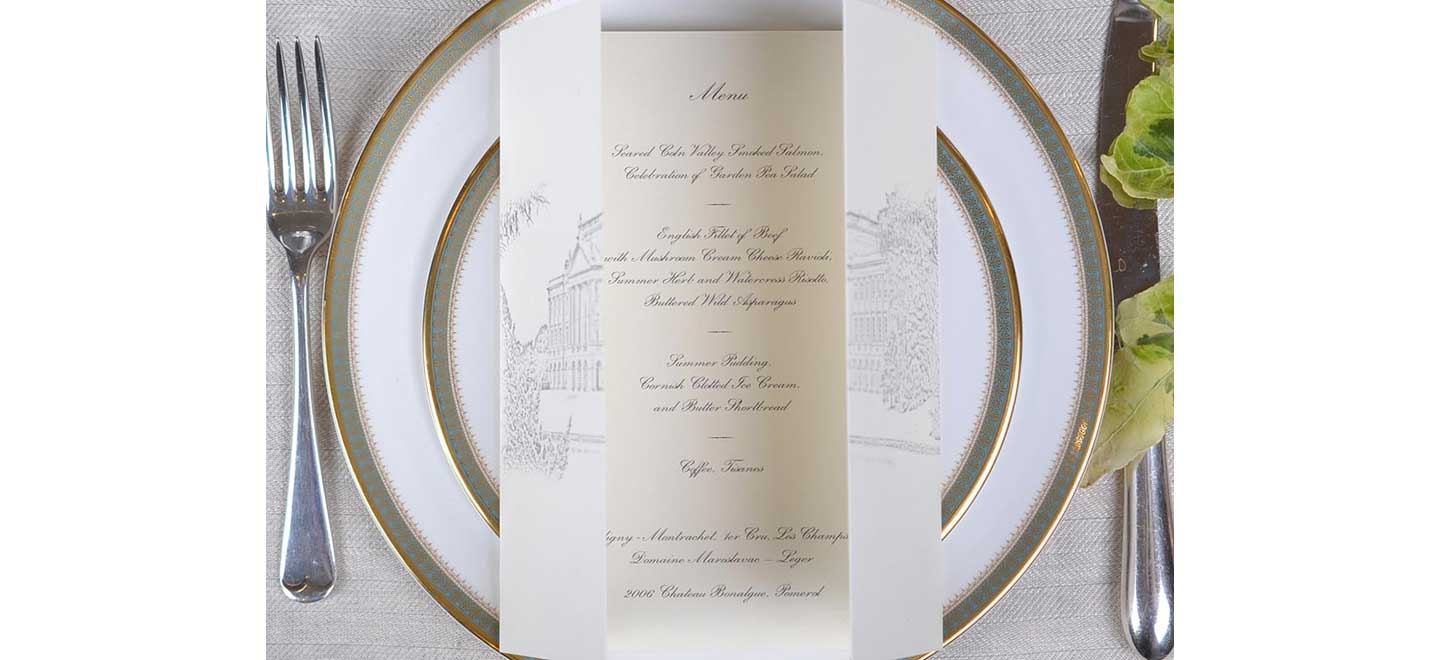 Menu
Seared Coln Valley Smoked Salmon,
Celebration of Garden Pea Salad
English Fillet of Beef
with Mushroom Cream Cheese Ravioli,
Summer Herb and Watercross Risotto,
Buttered Wild Asparagus
Summer Pudding,
Cornish Clotted Ice Cream,
and Butter Shortbread
Coffee, Tisanes
ligny - Montrachet, 1er Cru, Les Champs
Domaine Maroslavac – Leger
2006 Chateau Bonalgue, Pomerol